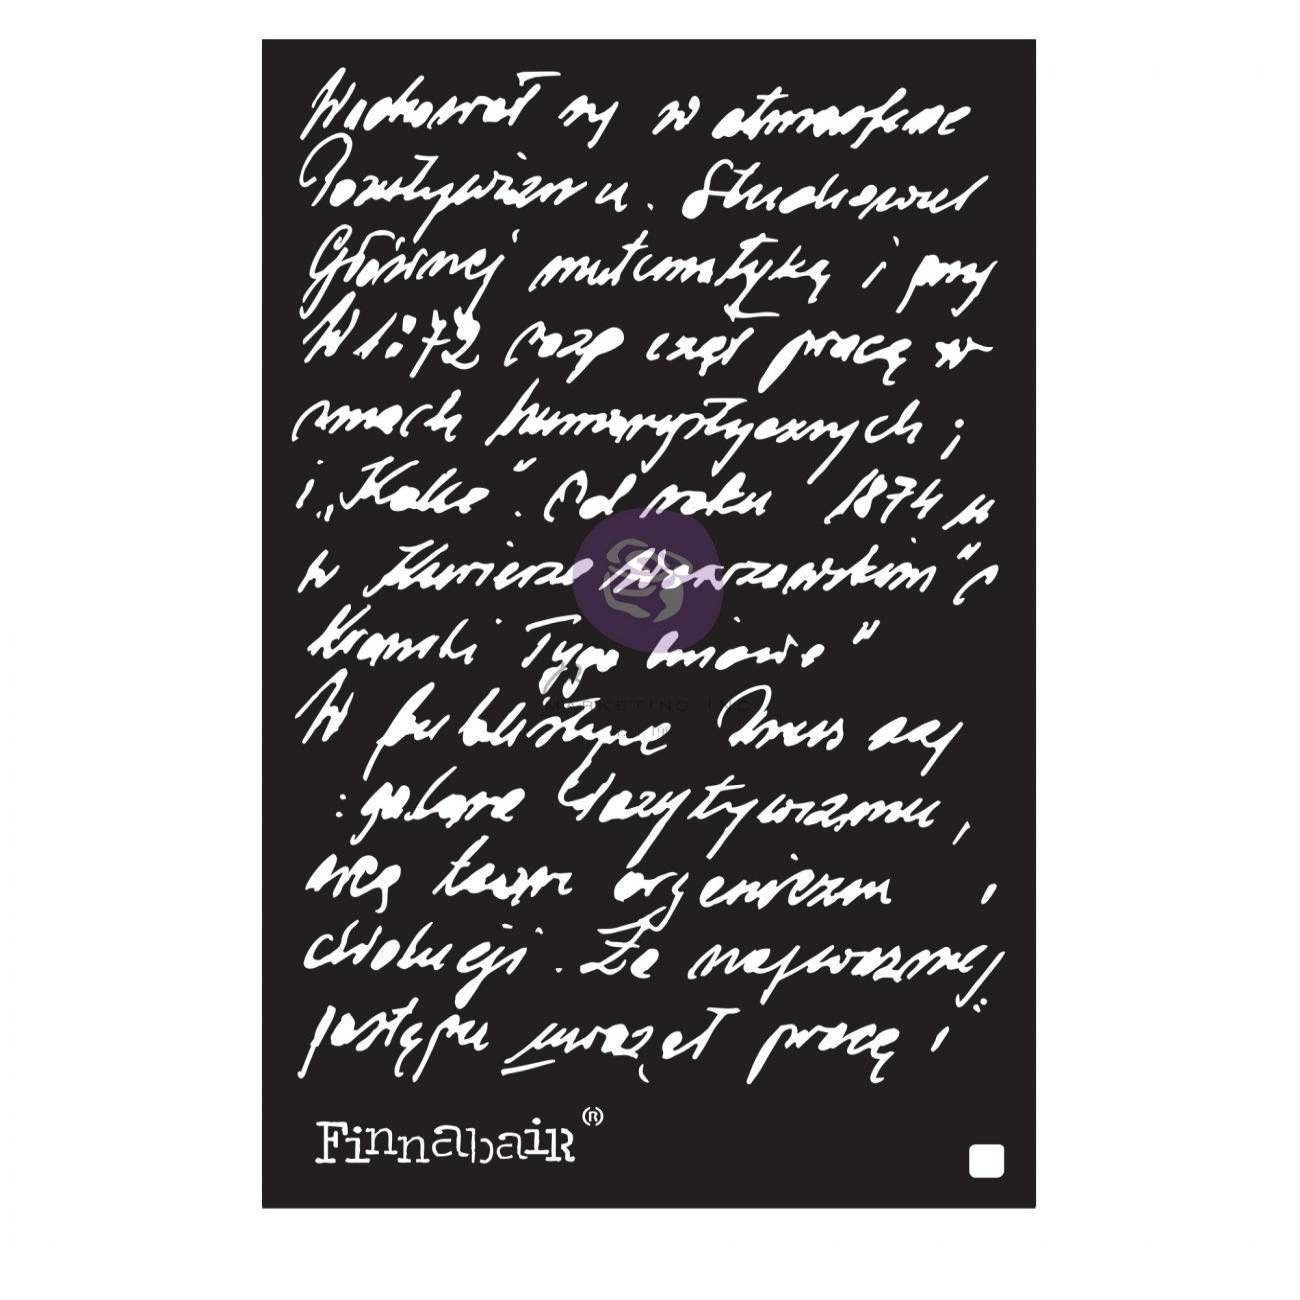 Wychował się w atmosferze
Pozytywizmu. Studiował
Głównej matematykę i przy
W 1872 rozpoczął pracę w
smach humorystycznych i
i „Kolce”. Od roku 1874
w Kurierze Warszawskim” i
Kronski Tygodniowe”
W publistyce
Pozytywizmu,
organiczn
ewolucji. Za najważniej
postępu uważał pracę i
Finnabair (R)
MARKETING INC